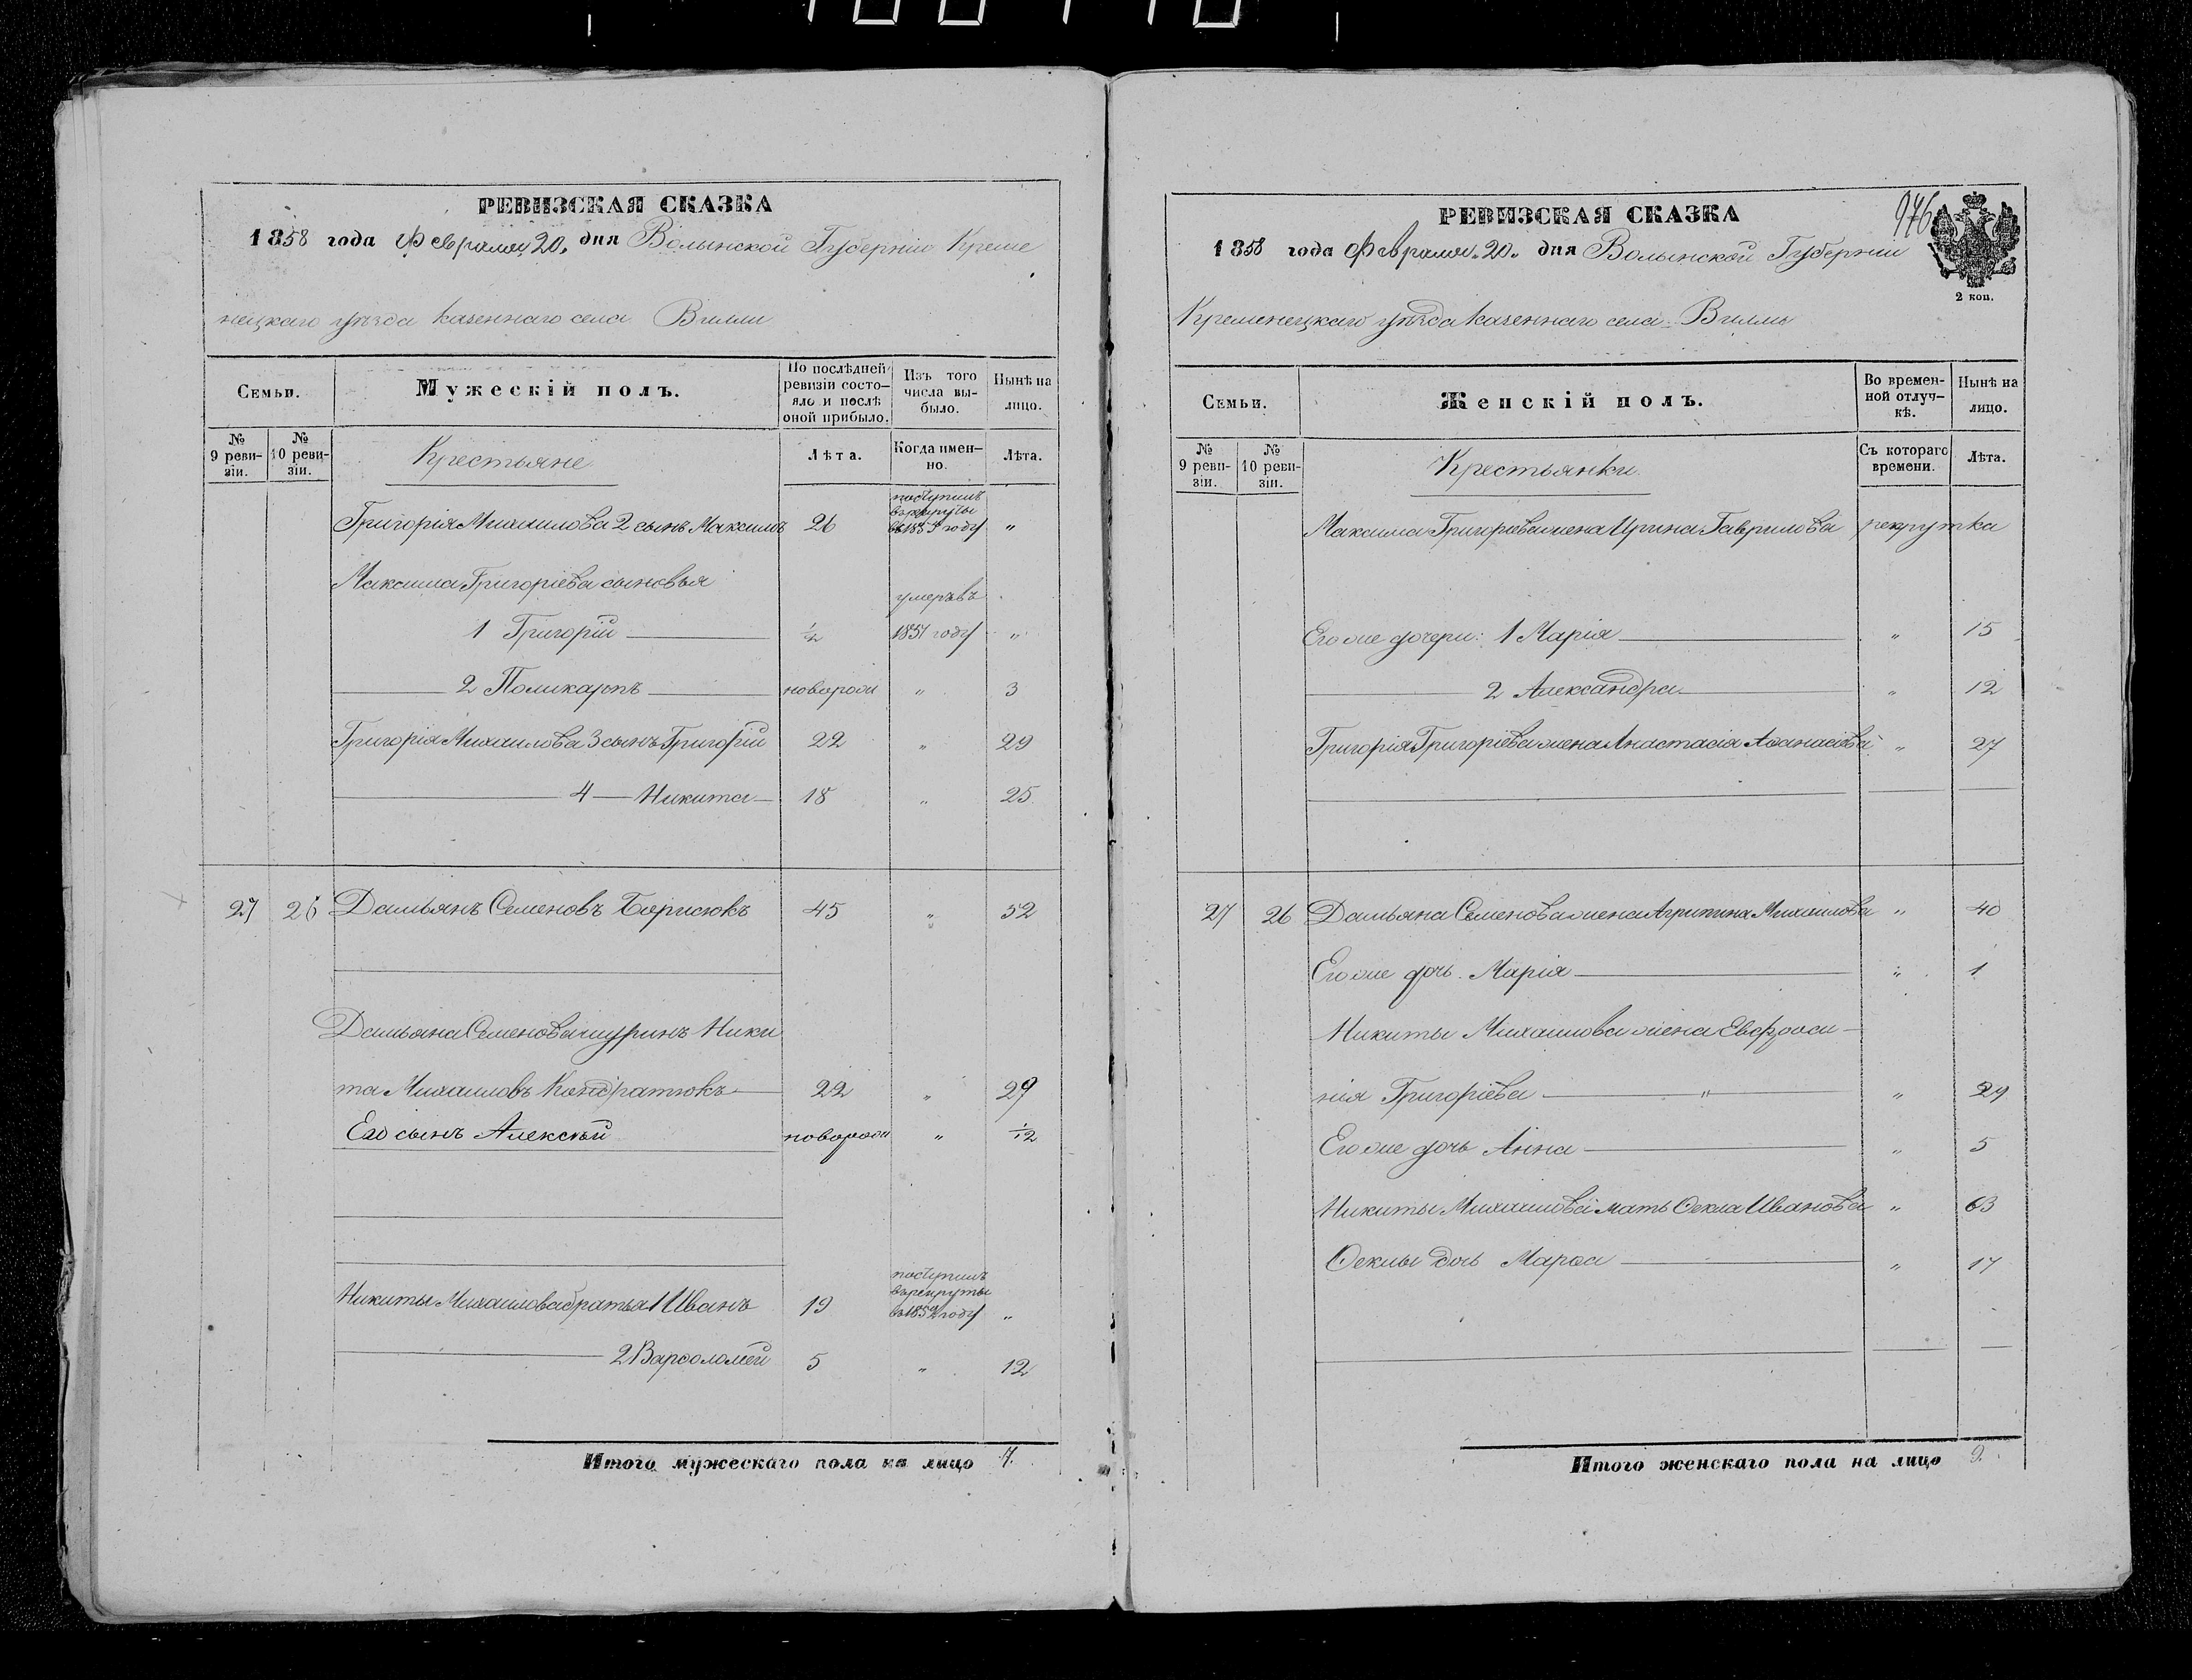 РЕВИЗСКАЯ СКАЗКА
1858 года Февраля 20. дня Волынской Губерніи Креме
нецкаго уѣзда казеннаго села Вилли
Семьи.
Мужескій полъ.
По послѣдней ревизіи состояло и послѣ оной прибыло.
Изъ того числа выбыло.
Нынѣ на лицо.
№ 9 ревизіи.
№ 10 ревизіи.
Крестьяне
Лѣта.
Когда именно.
Лѣта.
Григорія Михаилова 2 сынъ Максимъ 26 поступилъ в рекруты въ 1854 году "
Максима Григоріева сыновья
1 Григорій — 1/2 умеръ въ 1851 году "
2 Поликарпъ — новорож " 3
Григорія Михаилова 3 сынъ Григорій 22 " 29
4 — Никита — 18 " 25
27 26 Дамьянъ Семеновъ Борисюкъ 45 " 52
Дамьяна Семенова шуринъ Ники
та Михаиловъ Кондратюкъ 22 " 29
Его сынъ Алексѣй новорож " 1/12
Никиты Михаилова братья 1 Иванъ 19 поступилъ въ рекруты въ 1852 году "
2 Варѳоломей 5 " 12
Итого мужескаго пола на лицо 7.
976
РЕВИЗСКАЯ СКАЗКА
1858 года Февраля "20" дня Волынской Губерніи
2 коп.
Кременецкаго уѣзда казеннаго села Вилли
Семьи.
Женскій полъ.
Во временной отлучкѣ.
Нынѣ на лицо.
№ 9 ревизіи.
№ 10 ревизіи.
Крестьянки
Съ котораго времени.
Лѣта.
Максима Григоріева жена Ирина Гаврилова рекрутка
Его же дочери: 1 Марія — " 15
2 Александра — " 12
Григорія Григоріева жена Анастасія Аѳанасіева " 27
27 26 Дамьяна Семенова жена Агрипина Михаилова " 40
Его же дочь Марія — " 1
Никиты Михаилова жена Евфроси-
нія Григоріева — " " 29
Его же дочь Анна — " 5
Никиты Михаилова мать Ѳекла Иванова " 63
Ѳеклы дочь Марѳа — " 17
Итого женскаго пола на лицо 9.